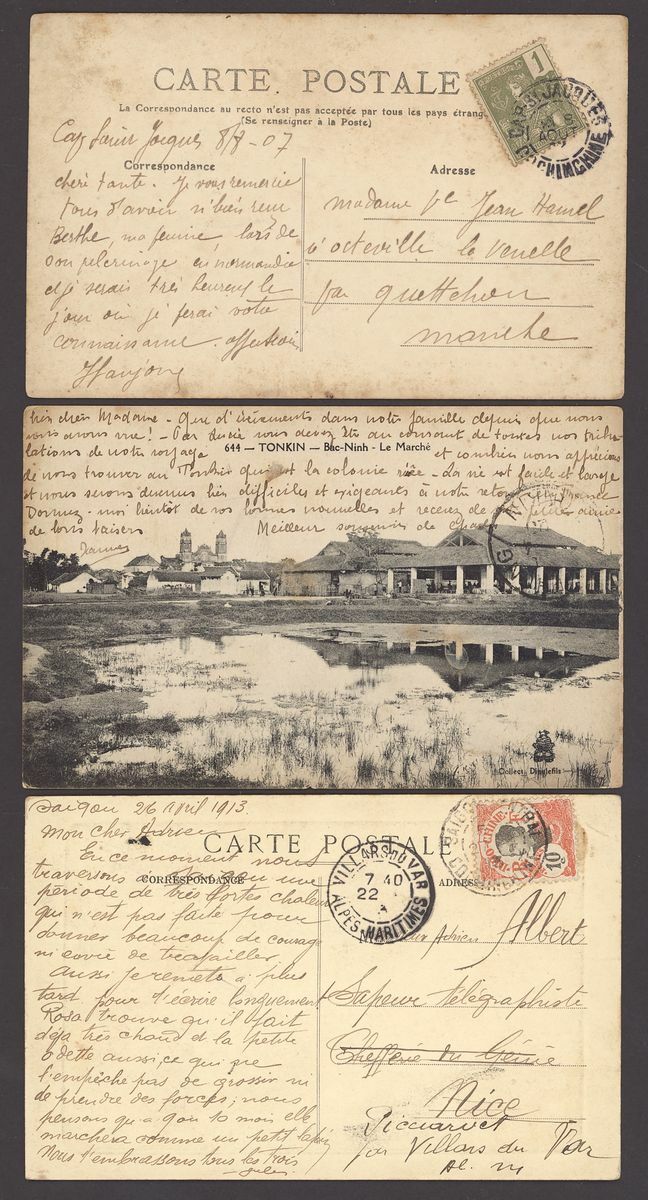 CARTE POSTALE
La Correspondance au recto n'est pas acceptée par tous les pays étrang
(Se renseigner à la Poste)
1
CAP-ST-JACQUES
AOUT
COCHINCHINE
Cap Saint Jacques 8/8-07
Correspondance
chère tante. Je vous remercie
tous d'avoir si bien reçu
Berthe, ma femme lors de
son pèlerinage en normandie
et je serais très heureux le
jour où je ferai votre
connaissance.
Adresse
Madame Ve Jean Hamel
à octeville la venelle
par quettehou
manche
bien chère Madame - Que d'évènements dans notre famille depuis que nous
nous avons vue! - Par Lucie vous devez être au courant de toutes nos tribu
lations de notre voyage et combien nous apprécions
644 — TONKIN — Bac-Ninh - Le Marché
de nous trouver au Tonkin qui est la colonie rêvée - La vie est facile et large
et nous serons devenus bien difficiles et exigeants à notre retour France
Donnez-moi bientôt de vos bonnes nouvelles et recevez de petite amie
de bons baisers Meilleur souvenir de
Collect. Dieulefils
Saigon 26 avril 1913.
Mon cher Adrien
CARTE POSTALE
INDO-CHINE
10c
SAIGON-CENTRAL
COCHINCHINE
VILLARS DU VAR
7 40
22
ALPES-MARITIMES
CORRESPONDANCE
En ce moment nous
traversons une
période de très fortes chaleurs
qui n'est pas faite pour
donner beaucoup de courage
ni envie de travailler.
Aussi je remets à plus
tard pour t'écrire longuement
Rosa trouve qu'il fait
déjà très chaud et la petite
Odette aussi, ce qui ne
l'empêche pas de grossir ni
de prendre des forces; nous
pensons qu'à 9 ou 10 mois elle
marchera comme un petit lapin
Nous t'embrassons tous les trois
Jules
ADRESSE
Adrien Albert
Sapeur télégraphiste
Chefferie du Génie
Nice
par Villars du Var
Al. M